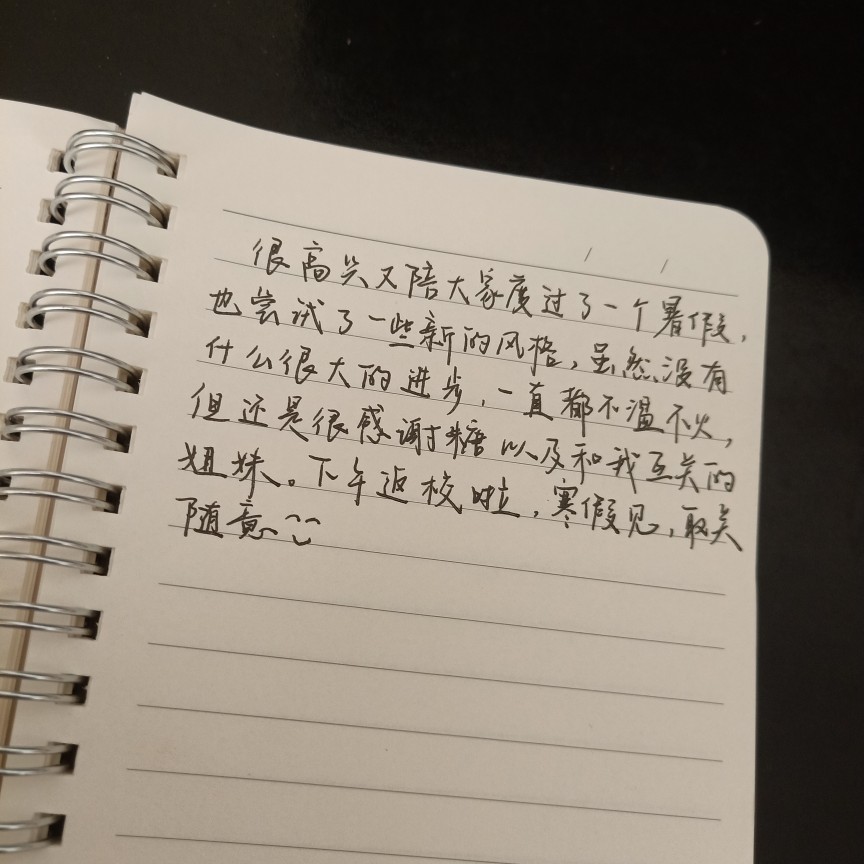 很高兴又陪大家度过了一个暑假，
也尝试了一些新的风格，虽然没有
什么很大的进步，一直都不温不火，
但还是很感谢糖以及和我互关的
姐妹。下午返校啦，寒假见，取关
随意